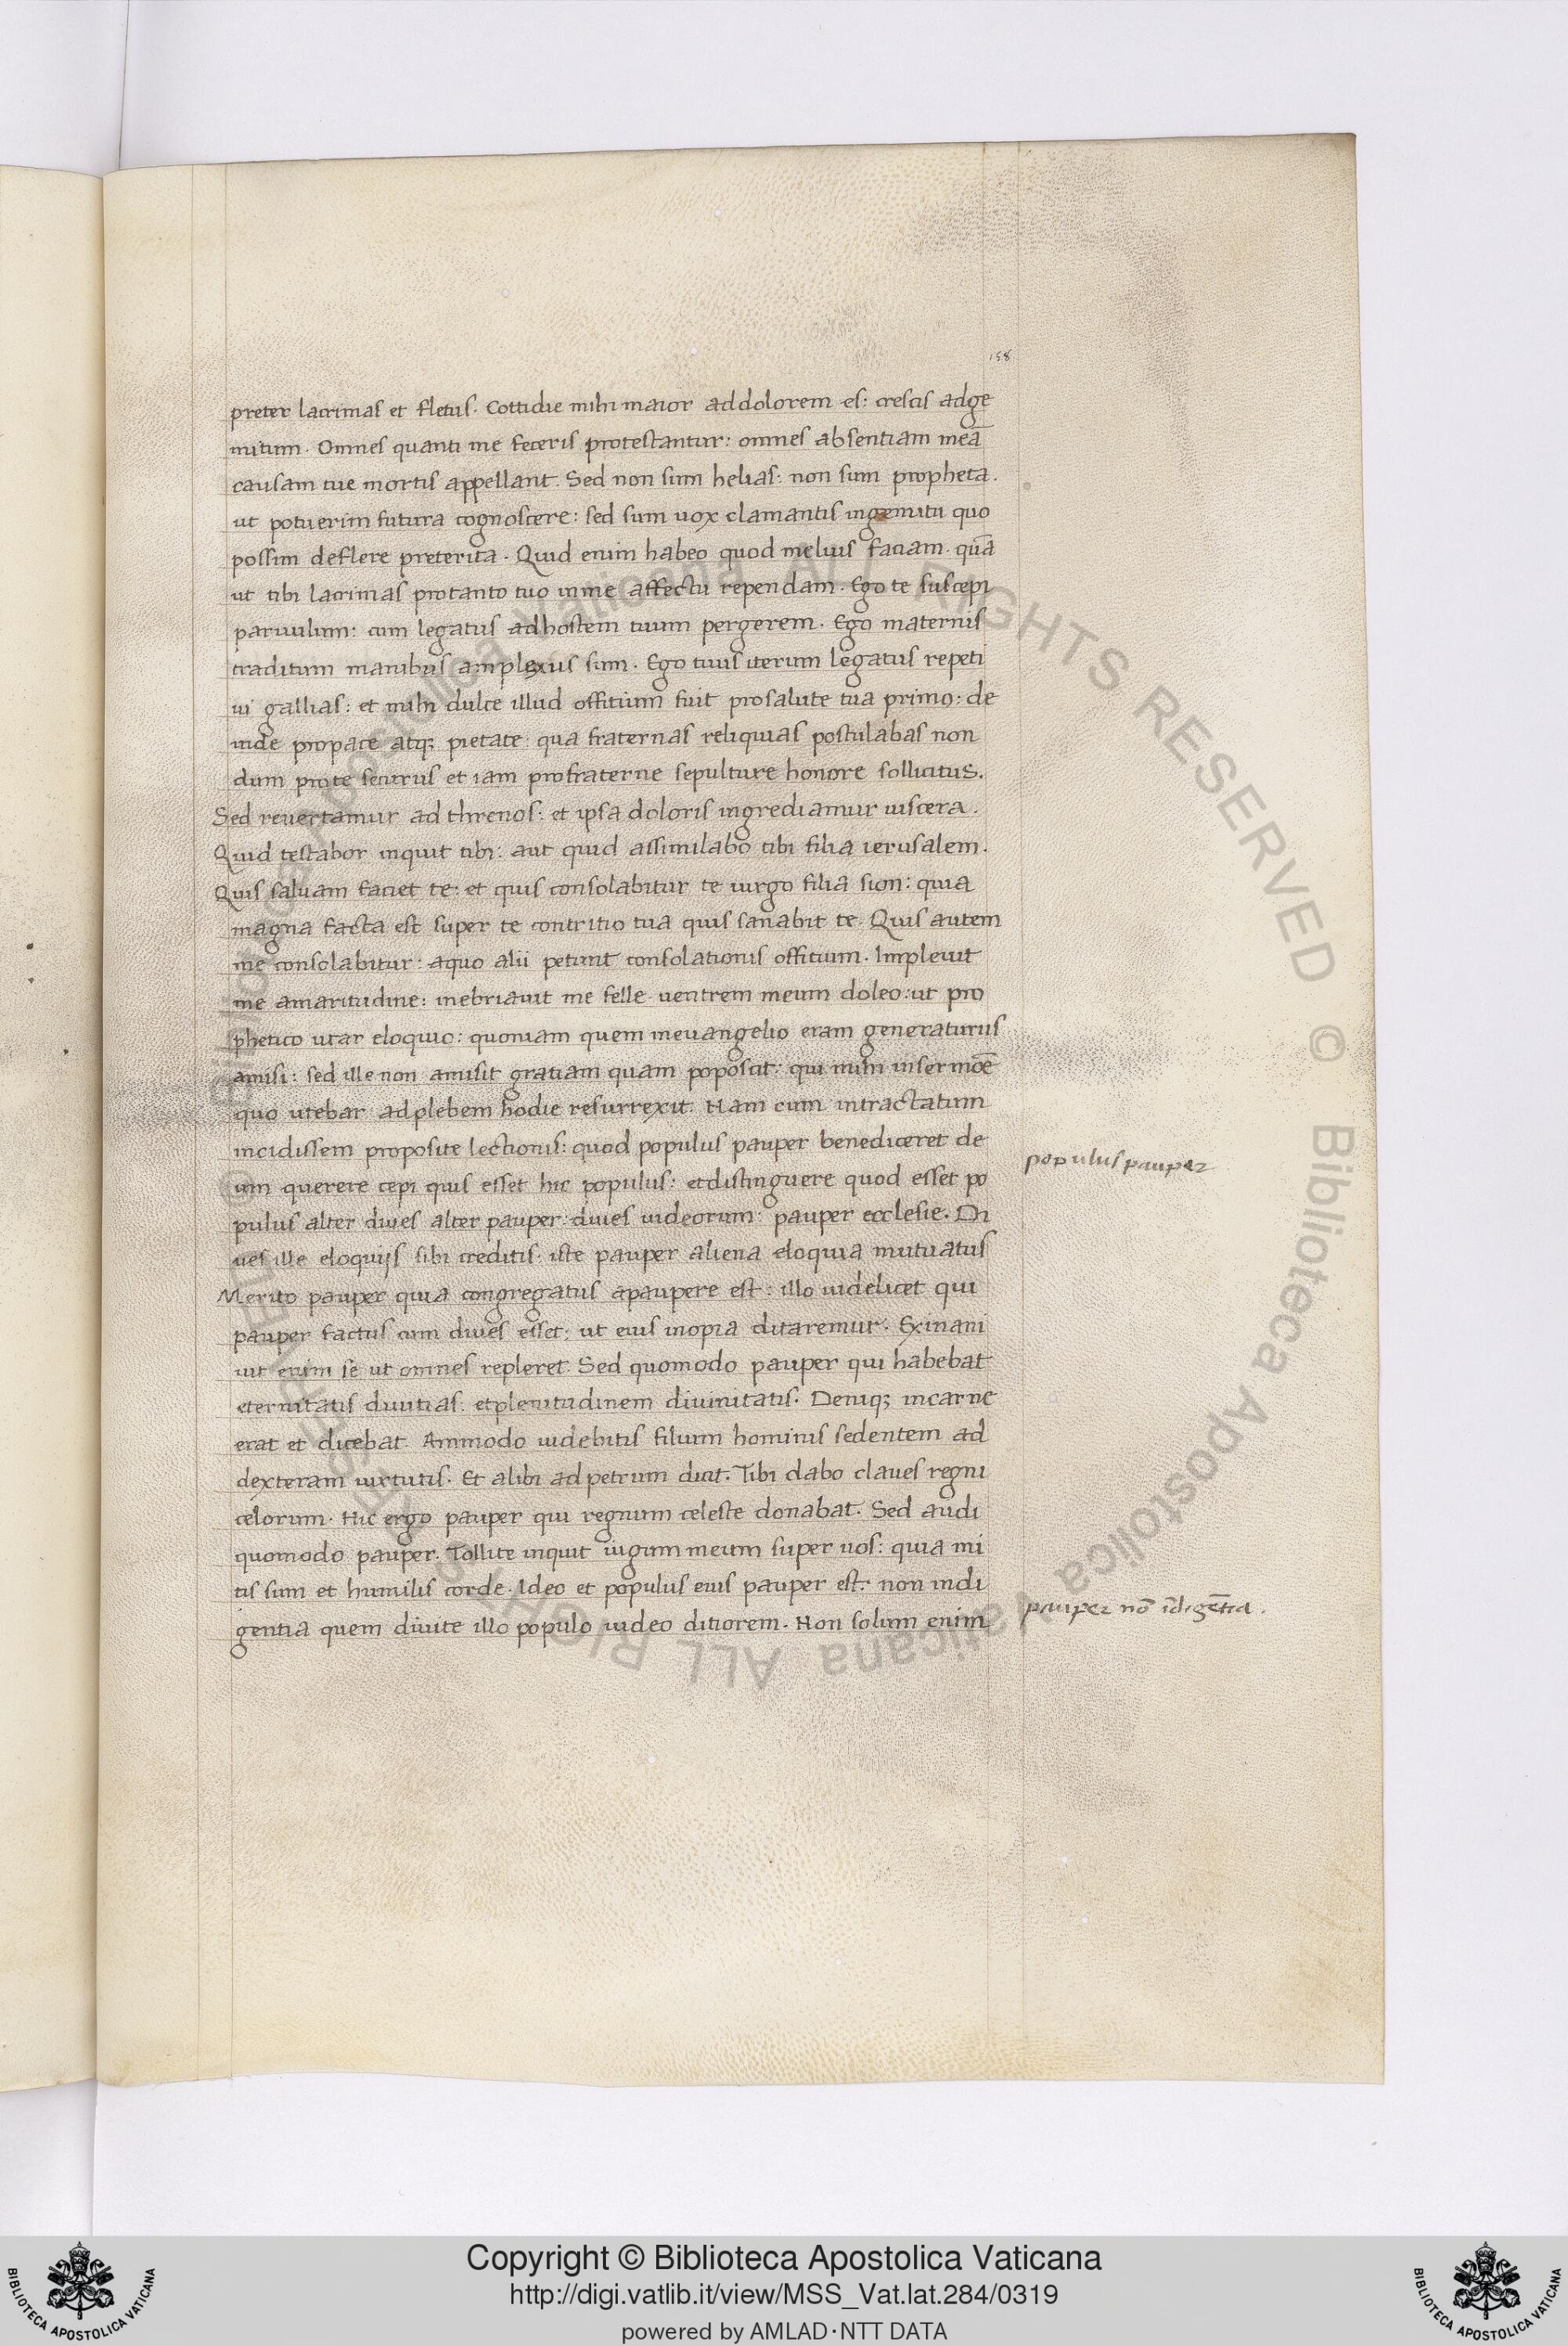 158
preter lacrimas et fletus. Cottidie mihi maior addolorem es: crescis adge
mitum. Omnes quanti me feceris protestantur: omnes absentiam meā
causam tue mortis appellant. Sed non sum helias: non sum propheta.
ut potuerim futura cognoscere: sed sum uox clamantis ingemitu quo
possim deflere preterita. Quid enim habeo quod melius faciam. quā
ut tibi lacrimas protanto tuo inme affectu rependam. Ego te suscepi
paruulum: cum legatus adhostem tuum pergerem. Ego maternis
traditum manibus amplexus sum. Ego tuus iterum legatus repeti
ui gallias: et mihi dulce illud offitium fuit prosalute tua primo: de
inde propace atq; pietate: qua fraternas reliquias postulabas non
dum prote securus et iam profraterne sepulture honore sollicitus.
Sed reuertamur ad threnos: et ipsa doloris ingrediamur uiscera.
Quid testabor inquit tibi: aut quid assimilabo tibi filia ierusalem.
Quis saluam faciet te: et quis consolabitur te uirgo filia sion: quia
magna facta est super te contritio tua quis sanabit te. Quis autem
me consolabitur: aquo alii petunt consolationis offitium. Impleuit
me amaritudine: inebriauit me felle. uentrem meum doleo: ut pro
phetico utar eloquio: quoniam quem meuangelio eram generaturus
amisi: sed ille non amisit gratiam quam poposcit: qui mihi insermoē
quo utebar adplebem hodie resurrexit. Nam cum intractatum
incidissem proposite lectionis: quod populus pauper benediceret de
um querere cepi quis esset hic populus: etdistinguere quod esset po
pulus alter diues alter pauper: diues iudeorum: pauper ecclesie. Di
ues ille eloquijs sibi creditis: iste pauper aliena eloquia mutuatus
Merito pauper quia congregatus apaupere est: illo uidelicet qui
pauper factus cum diues esset: ut eius inopia ditaremur. Exinani
uit enim se ut omnes repleret. Sed quomodo pauper qui habebat
eternitatis diuitias: etplenitudinem diuinitatis. Deniq; incarne
erat et dicebat. Ammodo uidebitis filium hominis sedentem ad
dexteram uirtutis. Et alibi adpetrum dicit. Tibi dabo claues regni
celorum. Hic ergo pauper qui regnum celeste donabat. Sed audi
quomodo pauper. Tollite inquit iugum meum super uos: quia mi
tis sum et humilis corde. Ideo et populus eius pauper est: non indi
gentia quem diuite illo populo uideo ditiorem. Non solum enim
populus pauper
pauper nō īdigētia.
© Biblioteca Apostolica Vaticana ALL RIGHTS RESERVED © Biblioteca Apostolica Vaticana ALL RIGHTS RESERVED
Copyright © Biblioteca Apostolica Vaticana
http://digi.vatlib.it/view/MSS_Vat.lat.284/0319
powered by AMLAD·NTT DATA
BIBLIOTECA APOSTOLICA VATICANA
BIBLIOTECA APOSTOLICA VATICANA